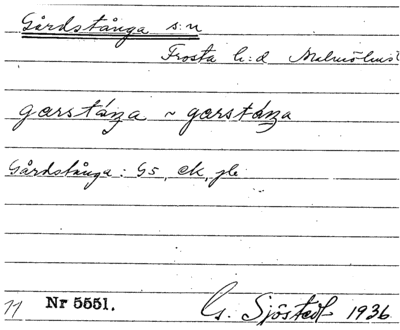 Gårdstånga s:n
Frosta h:d Malmöhus
garstáŋa ~ garstáŋa
Gårdstånga: G5, ek, jb
11 Nr 5551. G. Sjöstedt 1936